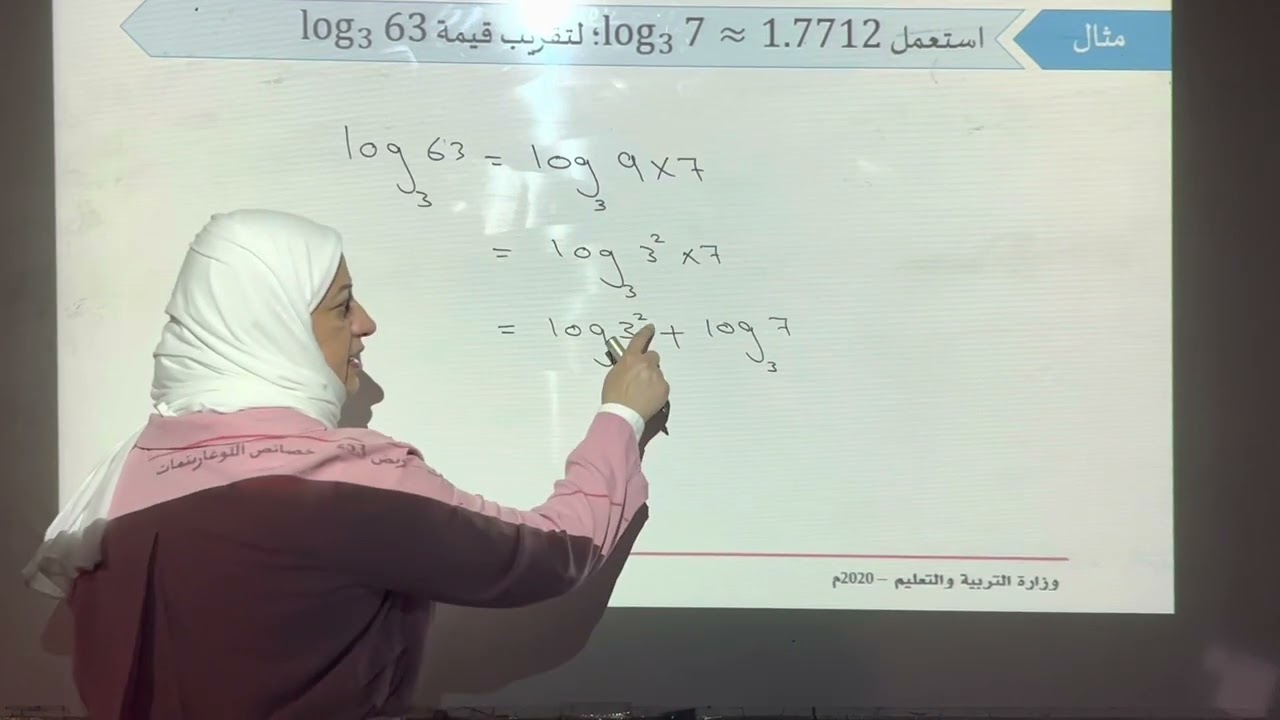 مثال
استعمل log₃ 7 ≈ 1.7712؛ لتقريب قيمة log₃ 63
log₃ 63 = log₃ 9 x 7
= log₃ 3² x 7
= log 3² + log₃ 7
خصائص اللوغاريتمات
وزارة التربية والتعليم – 2020م